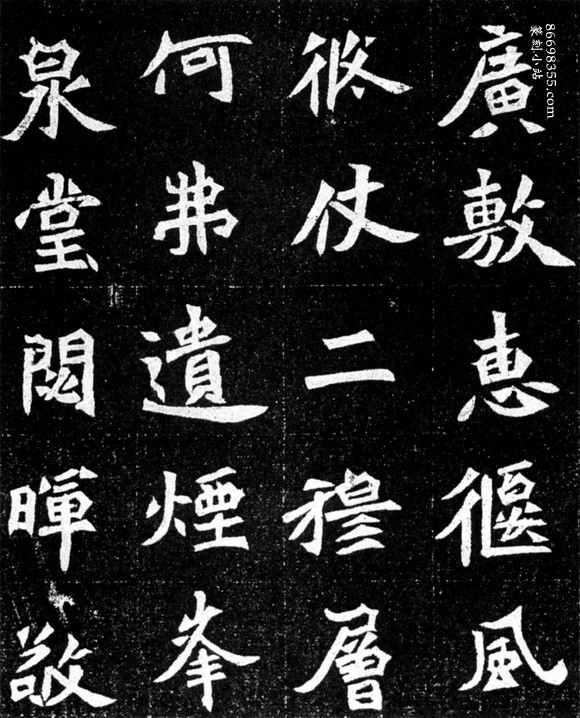 廣敷恵偃風
修仗二穆層
何弗遺煙峯
泉堂閟暉敬
86698355.com
篆刻小站